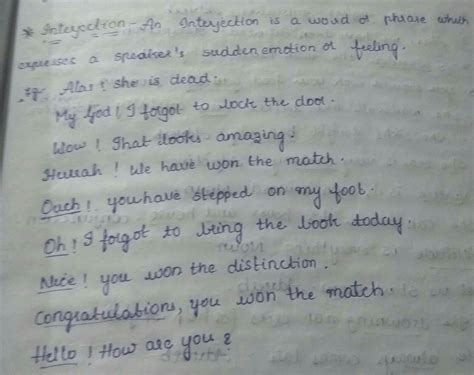 * Interjection - An Interjection is a word or phrase which
expresses a speaker's sudden emotion or feeling.
Eg Alas! she is dead.
My God! I forgot to lock the door.
Wow! That looks amazing!
Hurrah! We have won the match.
Oach! you have stepped on my foot.
Oh! I forgot to bring the book today.
Nice! you won the distinction.
Congratulations, you won the match.
Hello! How are you?